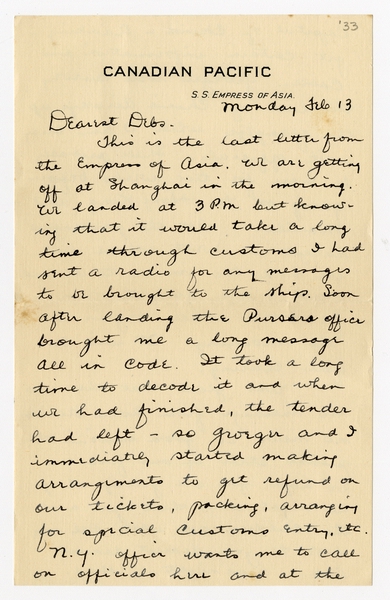 '33
CANADIAN PACIFIC
S.S. EMPRESS OF ASIA.
Monday Feb 13
Dearest Debs.
This is the last letter from
the Empress of Asia. We are getting
off at Shanghai in the morning.
We landed at 3 P.M but know-
ing that it would take a long
time through customs I had
sent a radio for any messages
to be brought to the ship. Soon
after landing the Pursers office
brought me a long message
all in code. It took a long
time to decode it and when
we had finished, the tender
had left – so Groeger and I
immediately started making
arrangements to get refund on
our tickets, packing, arranging
for special customs entry, etc.
N.Y. office wants me to call
on officials here and at the